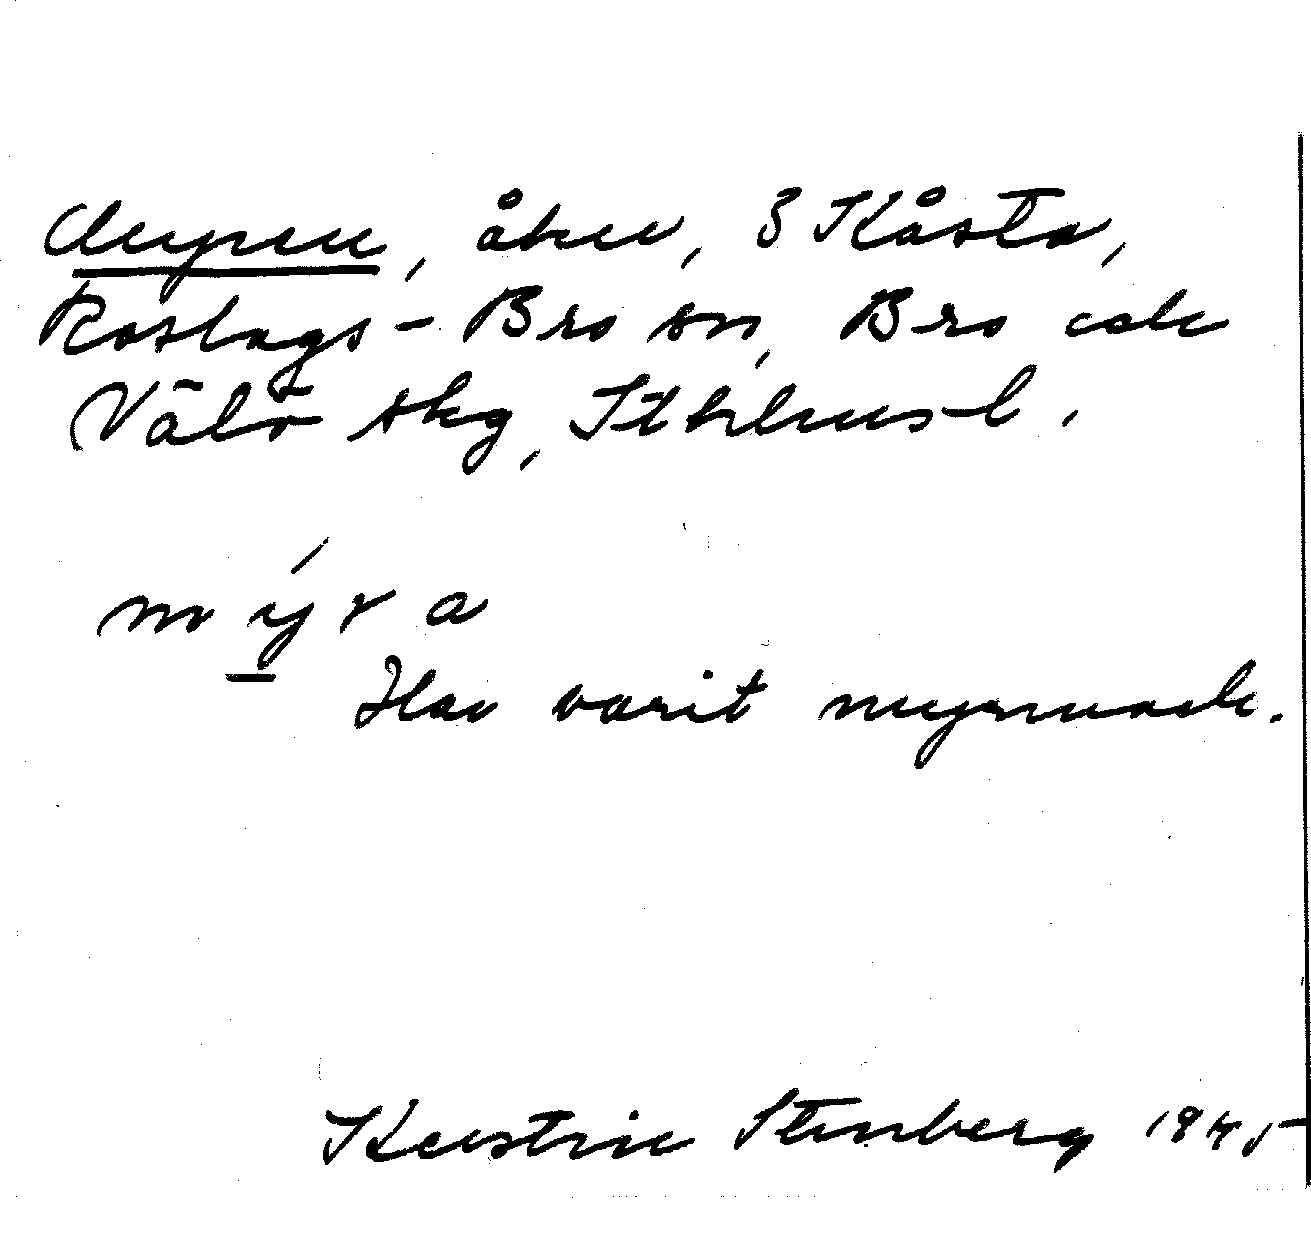 Myren, åker, 3 Kåsta,
Roslags-Bro sn, Bro och
Vätö skg, Sthlms l.
mýra
Har varit myrmark.
Kerstin Stenberg 1945